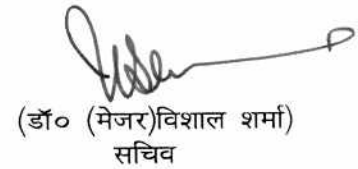 (डॉ० (मेजर)विशाल शर्मा)
सचिव